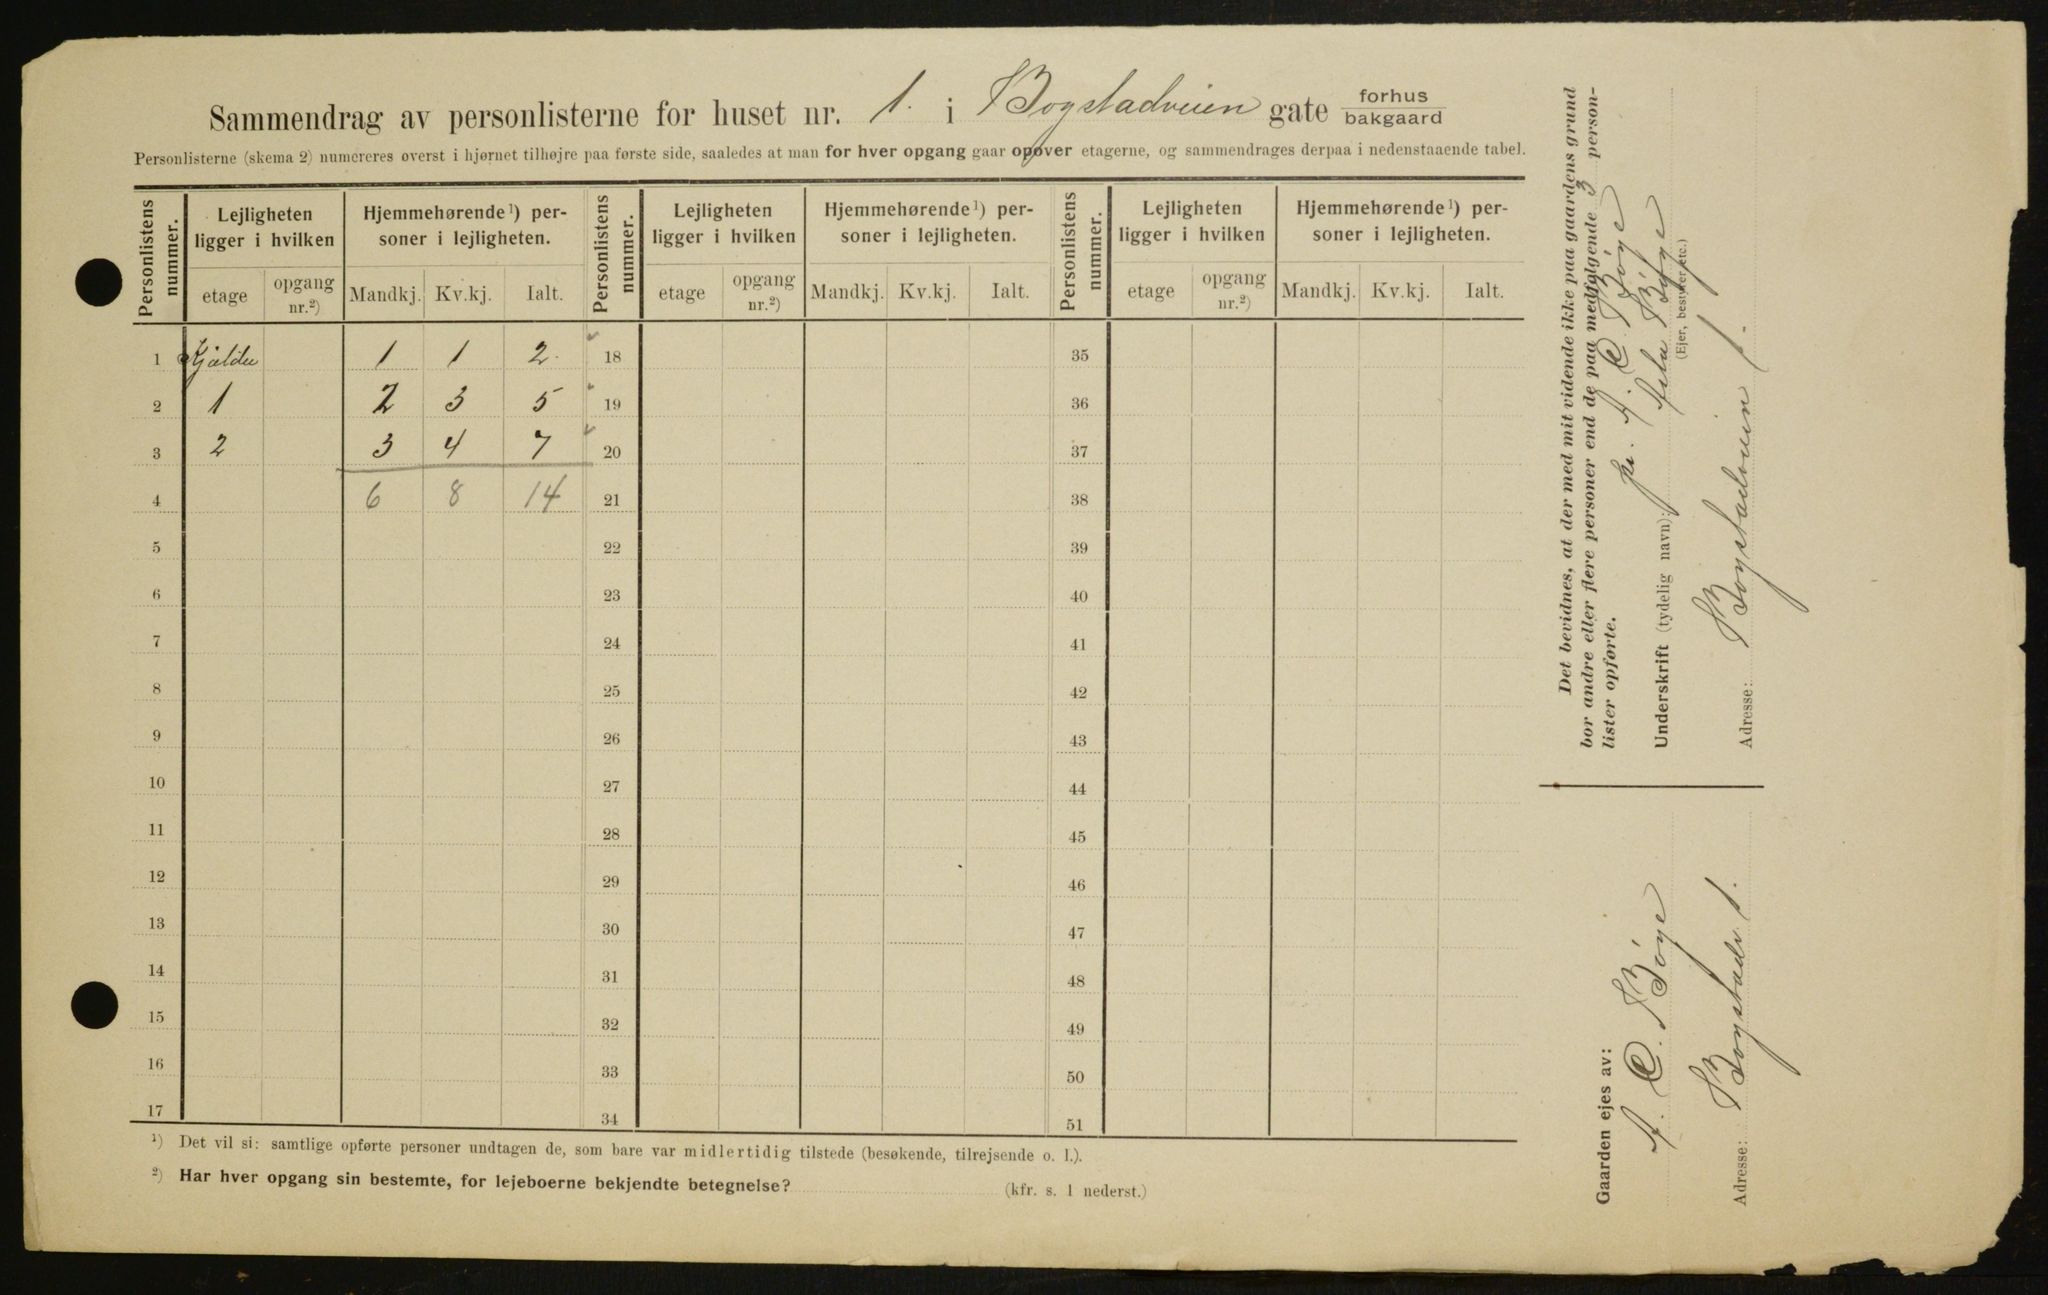 Sammendrag av personlisterne for huset nr. 1. i Bogstadveien gate forhus bakgaard
Personlisterne (skema 2) numereres øverst i hjørnet tilhøjre paa første side, saaledes at man for hver opgang gaar opover etagerne, og sammendrages derpaa i nedenstaaende tabel.
Personlistens nummer. Lejligheten ligger i hvilken Hjemmehørende¹) personer i lejligheten. Personlistens nummer. Lejligheten ligger i hvilken Hjemmehørende¹) personer i lejligheten. Personlistens nummer. Lejligheten ligger i hvilken Hjemmehørende¹) personer i lejligheten.
etage opgang nr.²) Mandkj. Kv.kj. Ialt. etage opgang nr.²) Mandkj. Kv.kj. Ialt. etage opgang nr.²) Mandkj. Kv.kj. Ialt.
1 Kjælder 1 1 2. 18 35
2 1 2 3 5 19 36
3 2 3 4 7 20 37
4 6 8 14 21 38
5 22 39
6 23 40
7 24 41
8 25 42
9 26 43
10 27 44
11 28 45
12 29 46
13 30 47
14 31 48
15 32 49
16 33 50
17 34 51
¹) Det vil si: samtlige opførte personer undtagen de, som bare var midlertidig tilstede (besøkende, tilrejsende o. l.).
²) Har hver opgang sin bestemte, for lejeboerne bekjendte betegnelse? (kfr. s. 1 nederst.)
Det bevidnes, at der med mit vidende ikke paa gaardens grund
bor andre eller flere personer end de paa medfølgende 3 person-
lister opførte.
A. C. Böye
Underskrift (tydelig navn): Böye
(Ejer, bestyrer etc.)
Adresse: Bogstadveien 1.
Gaarden ejes av:
A. C. Böye
Adresse: Bogstadv. 1.